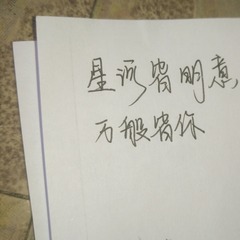 星河皆明意,
万般皆你